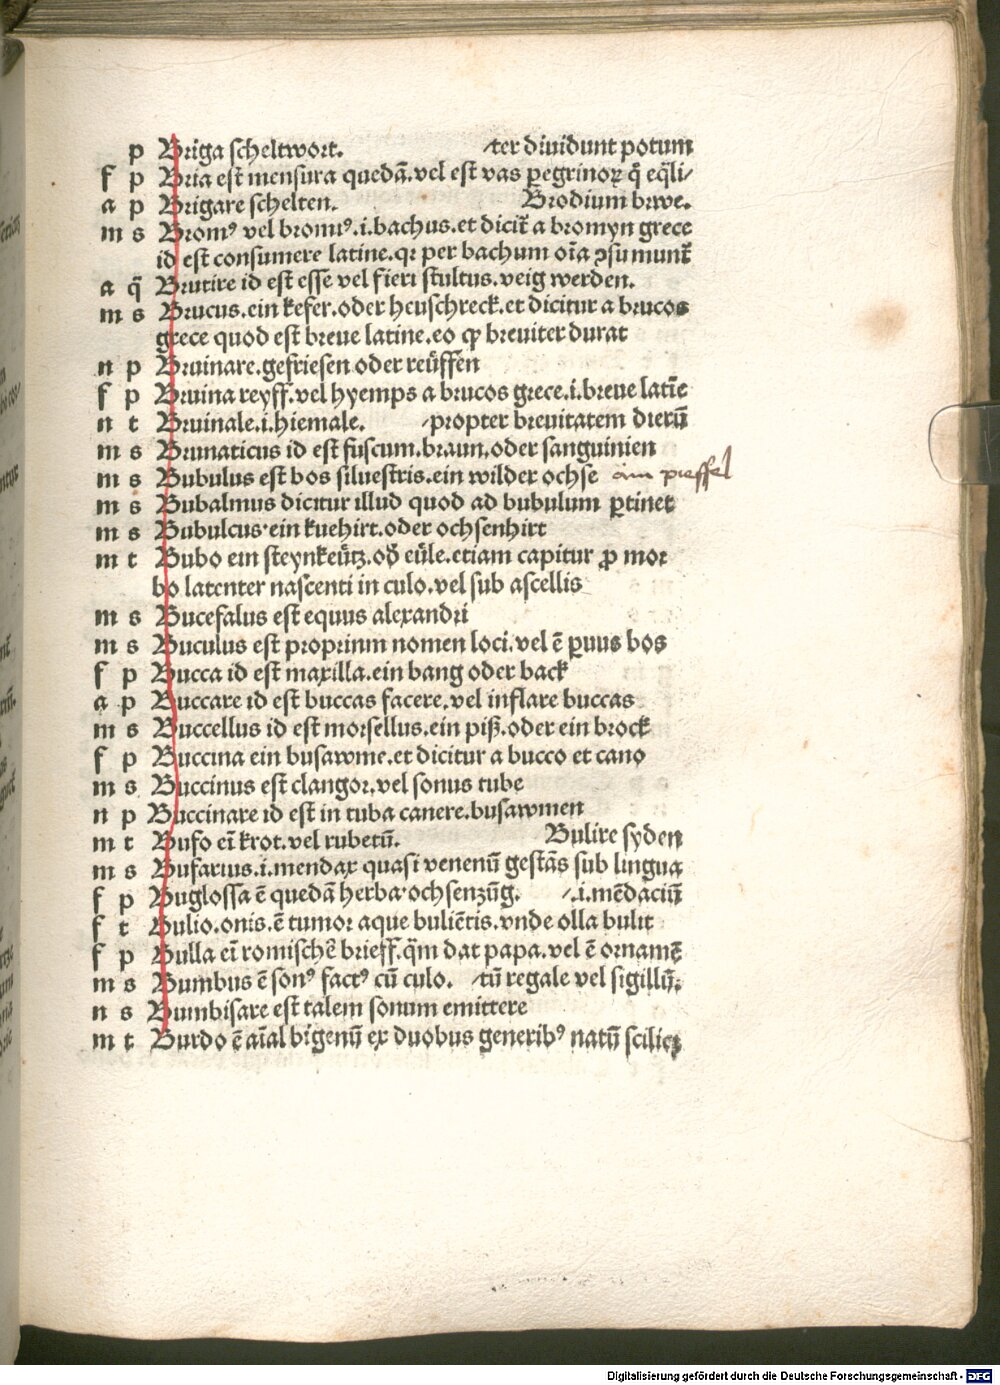 p Briga scheltwort. ⁄ter diuidunt potum
f p Bria est mensura quedā.vel est vas ꝑegrinoꝝ q̄ eq̄li⁄
a p Brigare schelten. Brodium brwe.
m s Bromꝰ vel bromiꝰ.i.bachus.et dicit̄ a bromyn grece
id est consumere latine.qꝛ per bachum oīa ꝯsumunt̄
a q̄ Brutire id est esse vel fieri stultus.veig werden.
m s Brucus.ein kefer.oder heuschreck.et dicitur a brucos
grece quod est breue latine.eo ꝙ breuiter durat
n p Bruinare.gefriesen oder reüffen
f p Bruina reyff.vel hyemps a brucos grece.i.breue latīe
n t Bruinale.i.hiemale. ⁄propter breuitatem dierū
m s Brunaticus id est fuscum.braun.oder sanguinien
m s Bubulus est bos siluestris.ein wilder ochse ain pieffel
m s Bubalmus dicitur illud quod ad bubulum ꝑtinet
m s Bubulcus·ein kuehirt.oder ochsenhirt
m t Bubo ein steynkeütz.od̄ eüle.etiam capitur ꝓ mor
bo latenter nascenti in culo.vel sub ascellis
m s Bucefalus est equus alexandri
m s Buculus est proprium nomen loci.vel ē ꝑuus bos
f p Bucca id est maxilla.ein bang oder back
a p Buccare id est buccas facere.vel inflare buccas
m s Buccellus id est morsellus.ein piß.oder ein brock
f p Buccina ein busawme.et dicitur a bucco et cano
m s Buccinus est clangor.vel sonus tube
n p Buccinare id est in tuba canere.busawmen
m t Bufo eī krot.vel rubetū. Bulire syden
m s Bufarius.i.mendax quasi venenū gestās sub lingua
f p Buglossa ē quedā herba·ochsenzūg. ⁄.i.mēdaciū
f t Bulio.onis.ē tumor aque buliētis.vnde olla bulit
f p Bulla eī romischē brieff.q̄m dat papa.vel ē ornamē
m s Bumbus ē sonꝰ factꝰ cū culo. ⁄tū regale vel sigillū.
n s Bumbisare est talem sonum emittere
m t Burdo ē aīal bigenū ex duobus generibꝰ natū scilicꝫ
Digitalisierung gefördert durch die Deutsche Forschungsgemeinschaft - DFG